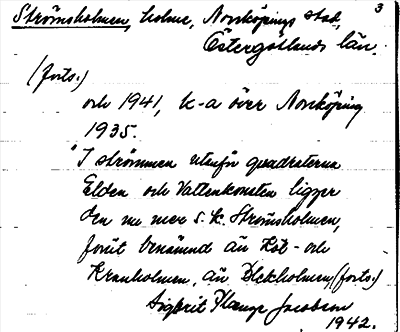 3
Strömsholmen, holme, Norrköpings stad,
Östergötlands län.
(forts.)
och 1941, k-a över Norrköping
1935.
"I strömmen utanför quadreterna
Elden och Vattenkonsten ligger
den nu mera s.k. Strömsholmen,
förut benämnd än Löt- och
Kranholmen, än Bleckholmen, (forts.)
Sigbrit Plange Jacobson
1942.